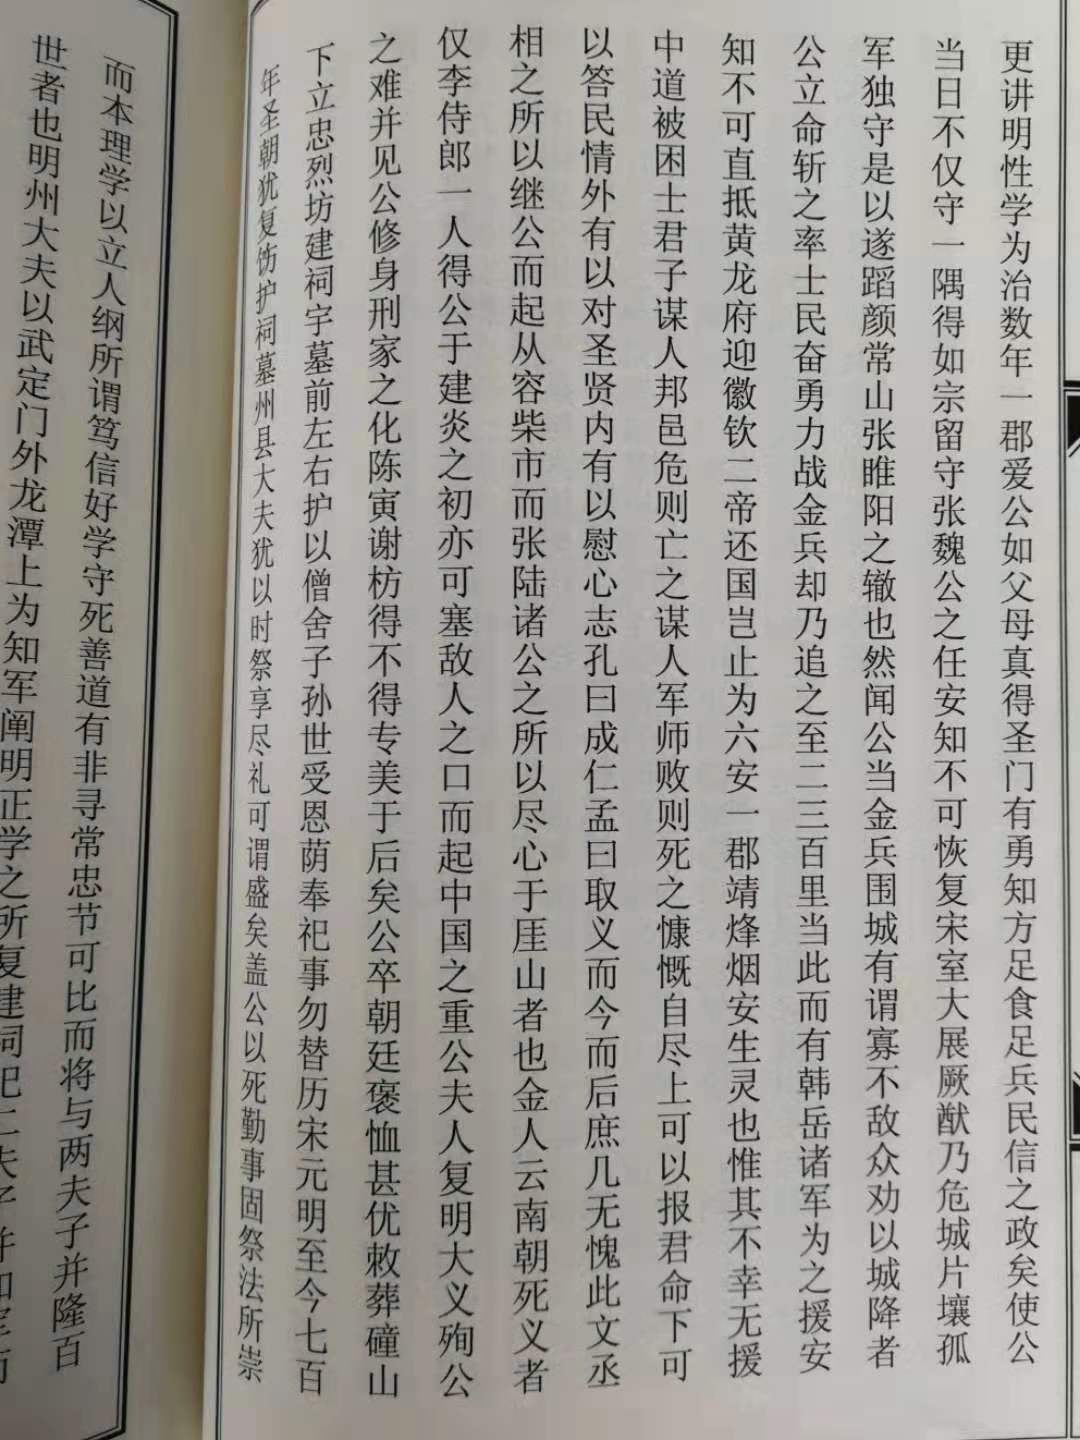 更讲明性学为治数年一郡爱公如父母真得圣门有勇知方足食足兵民信之政矣使公
当日不仅守一隅得如宗留守张魏公之任安知不可恢复宋室大展厥猷乃危城片壤孤
军独守是以遂蹈颜常山张睢阳之辙也然闻公当金兵围城有谓寡不敌众劝以城降者
公立命斩之率士民奋勇力战金兵却乃追之至二三百里当此而有韩岳诸军为之援安
知不可直抵黄龙府迎徽钦二帝还国岂止为六安一郡靖烽烟安生灵也惟其不幸无援
中道被困士君子谋人邦邑危则亡之谋人军师败则死之慷慨自尽上可以报君命下可
以答民情外有以对圣贤内有以慰心志孔曰成仁孟曰取义而今而后庶几无愧此文丞
相之所以继公而起从容柴市而张陆诸公之所以尽心于厓山者也金人云南朝死义者
仅李侍郎一人得公于建炎之初亦可塞敌人之口而起中国之重公夫人复明大义殉公
之难并见公修身刑家之化陈寅谢枋得不得专美于后矣公卒朝廷褒恤甚优敕葬䃥山
下立忠烈坊建祠宇墓前左右护以僧舍子孙世受恩荫奉祀事勿替历宋元明至今七百
年圣朝犹复饬护祠墓州县大夫犹以时祭享尽礼可谓盛矣盖公以死勤事固祭法所崇
而本理学以立人纲所谓笃信好学守死善道有非寻常忠节可比而将与两夫子并隆百
世者也明州大夫以武定门外龙潭上为知军阐明正学之所复建祠祀二夫子并